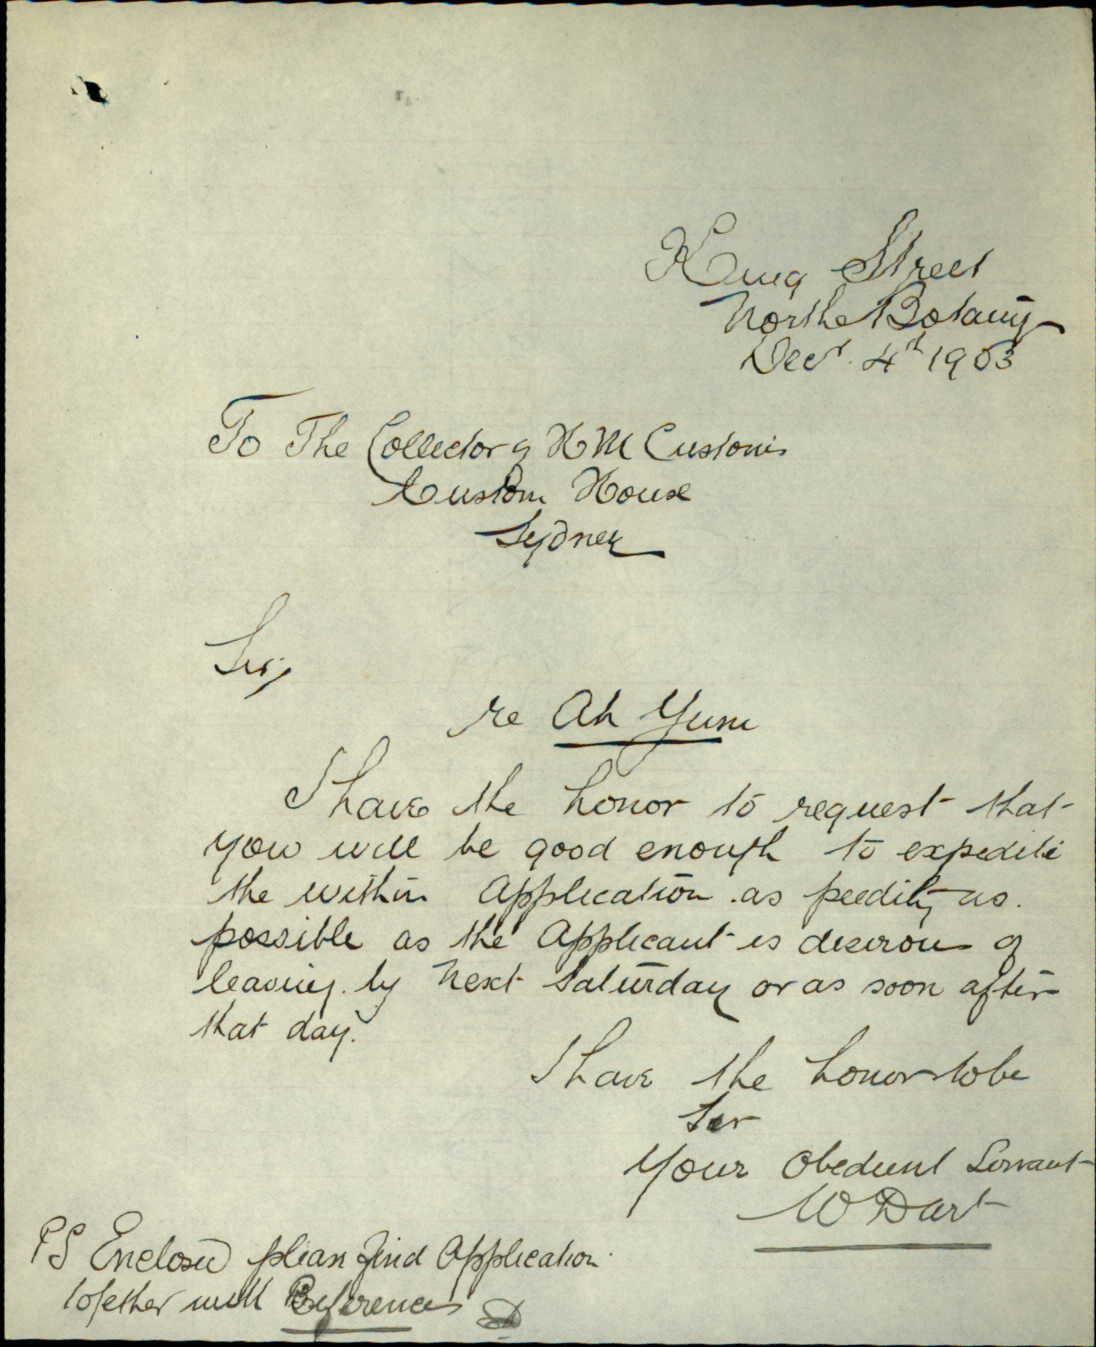 King Street
North Botany
Decr. 4th 1903
To The Collector of H M Customs
Custom House
Sydney
Sir,
re Ah Yum
I have the honor to request that
you will be good enough to expedite
the within Application as peedily as
possible as the Applicant is desirous of
leaving by Next Saturday or as soon after
that day.
I have the honor to be
Sir
Your Obedient Servant
W Dart
PS Enclosed please find Application
together with References